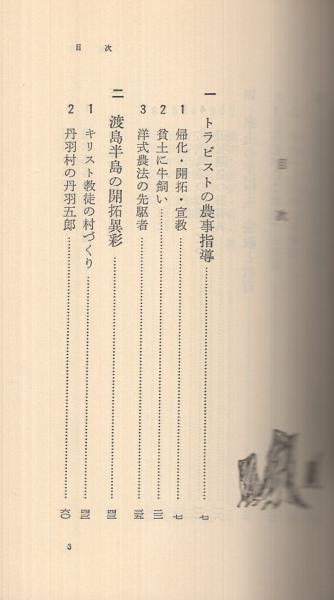 目次
目次
一 トラピストの農事指導……七
1 帰化・開拓・宣教……七
2 貧土に牛飼い……
3 洋式農法の先駆者……
二 渡島半島の開拓異彩……四三
1 キリスト教徒の村づくり……四三
2 丹羽村の丹羽五郎……六〇
3